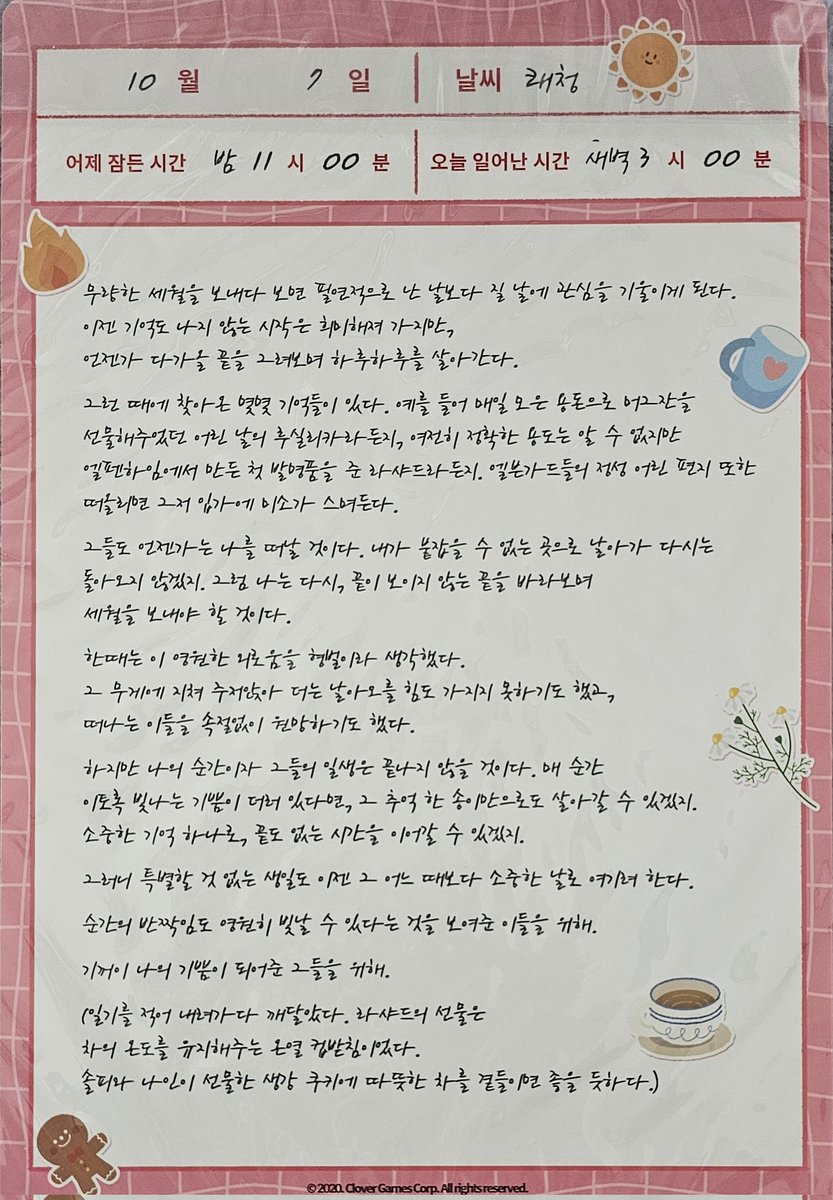 10 월 7 일 날씨 쾌청
어제 잠든 시간 밤 11 시 00 분 오늘 일어난 시간 새벽 3 시 00 분
무량한 세월을 보내다 보면 필연적으로 난 날보다 질 날에 관심을 기울이게 된다.
이젠 기억도 나지 않는 시작은 희미해져 가지만,
언젠가 다가올 끝을 그려보며 하루하루를 살아간다.
그런 때에 찾아온 몇몇 기억들이 있다. 예를 들어 매일 모은 용돈으로 머그잔을
선물해주었던 어린 날의 루실리카라든지, 여전히 정확한 용도는 알 수 없지만
엘펜하임에서 만든 첫 발명품을 준 라샤드라든지. 엘븐가드들의 정성 어린 편지 또한
떠올리면 그저 입가에 미소가 스며든다.
그들도 언젠가는 나를 떠날 것이다. 내가 붙잡을 수 없는 곳으로 날아가 다시는
돌아오지 않겠지. 그럼 나는 다시, 끝이 보이지 않는 끝을 바라보며
세월을 보내야 할 것이다.
한때는 이 영원한 외로움을 형벌이라 생각했다.
그 무게에 지쳐 주저앉아 더는 날아오를 힘도 가지지 못하기도 했고,
떠나는 이들을 속절없이 원망하기도 했다.
하지만 나의 순간이자 그들의 일생은 끝나지 않을 것이다. 매 순간
이토록 빛나는 기쁨이 더러 있다면, 그 추억 한 송이만으로도 살아갈 수 있겠지.
소중한 기억 하나로, 끝도 없는 시간을 이어갈 수 있겠지.
그러니 특별할 것 없는 생일도 이젠 그 어느 때보다 소중한 날로 여기려 한다.
순간의 반짝임도 영원히 빛날 수 있다는 것을 보여준 이들을 위해.
기꺼이 나의 기쁨이 되어준 그들을 위해.
(일기를 적어 내려가다 깨달았다. 라샤드의 선물은
차의 온도를 유지해주는 온열 컵받침이었다.
솔피와 나인이 선물한 생강 쿠키에 따뜻한 차를 곁들이면 좋을 듯하다.)
© 2020. Clover Games Corp. All rights reserved.